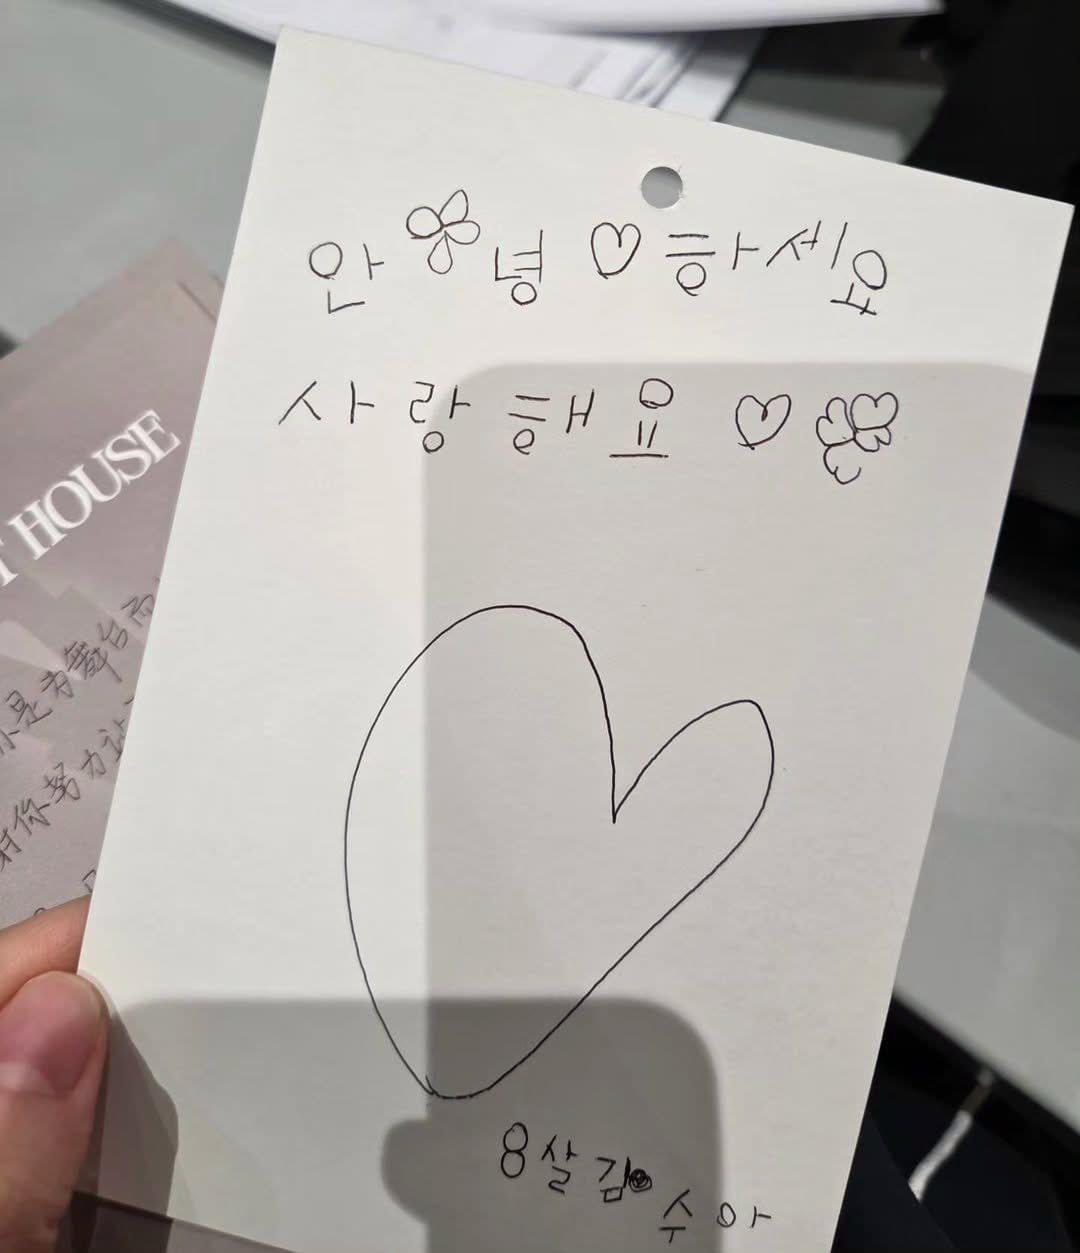 안녕♡하세요
사랑해요♡
8살 김수아
HOUSE
是为舞台而
你努力